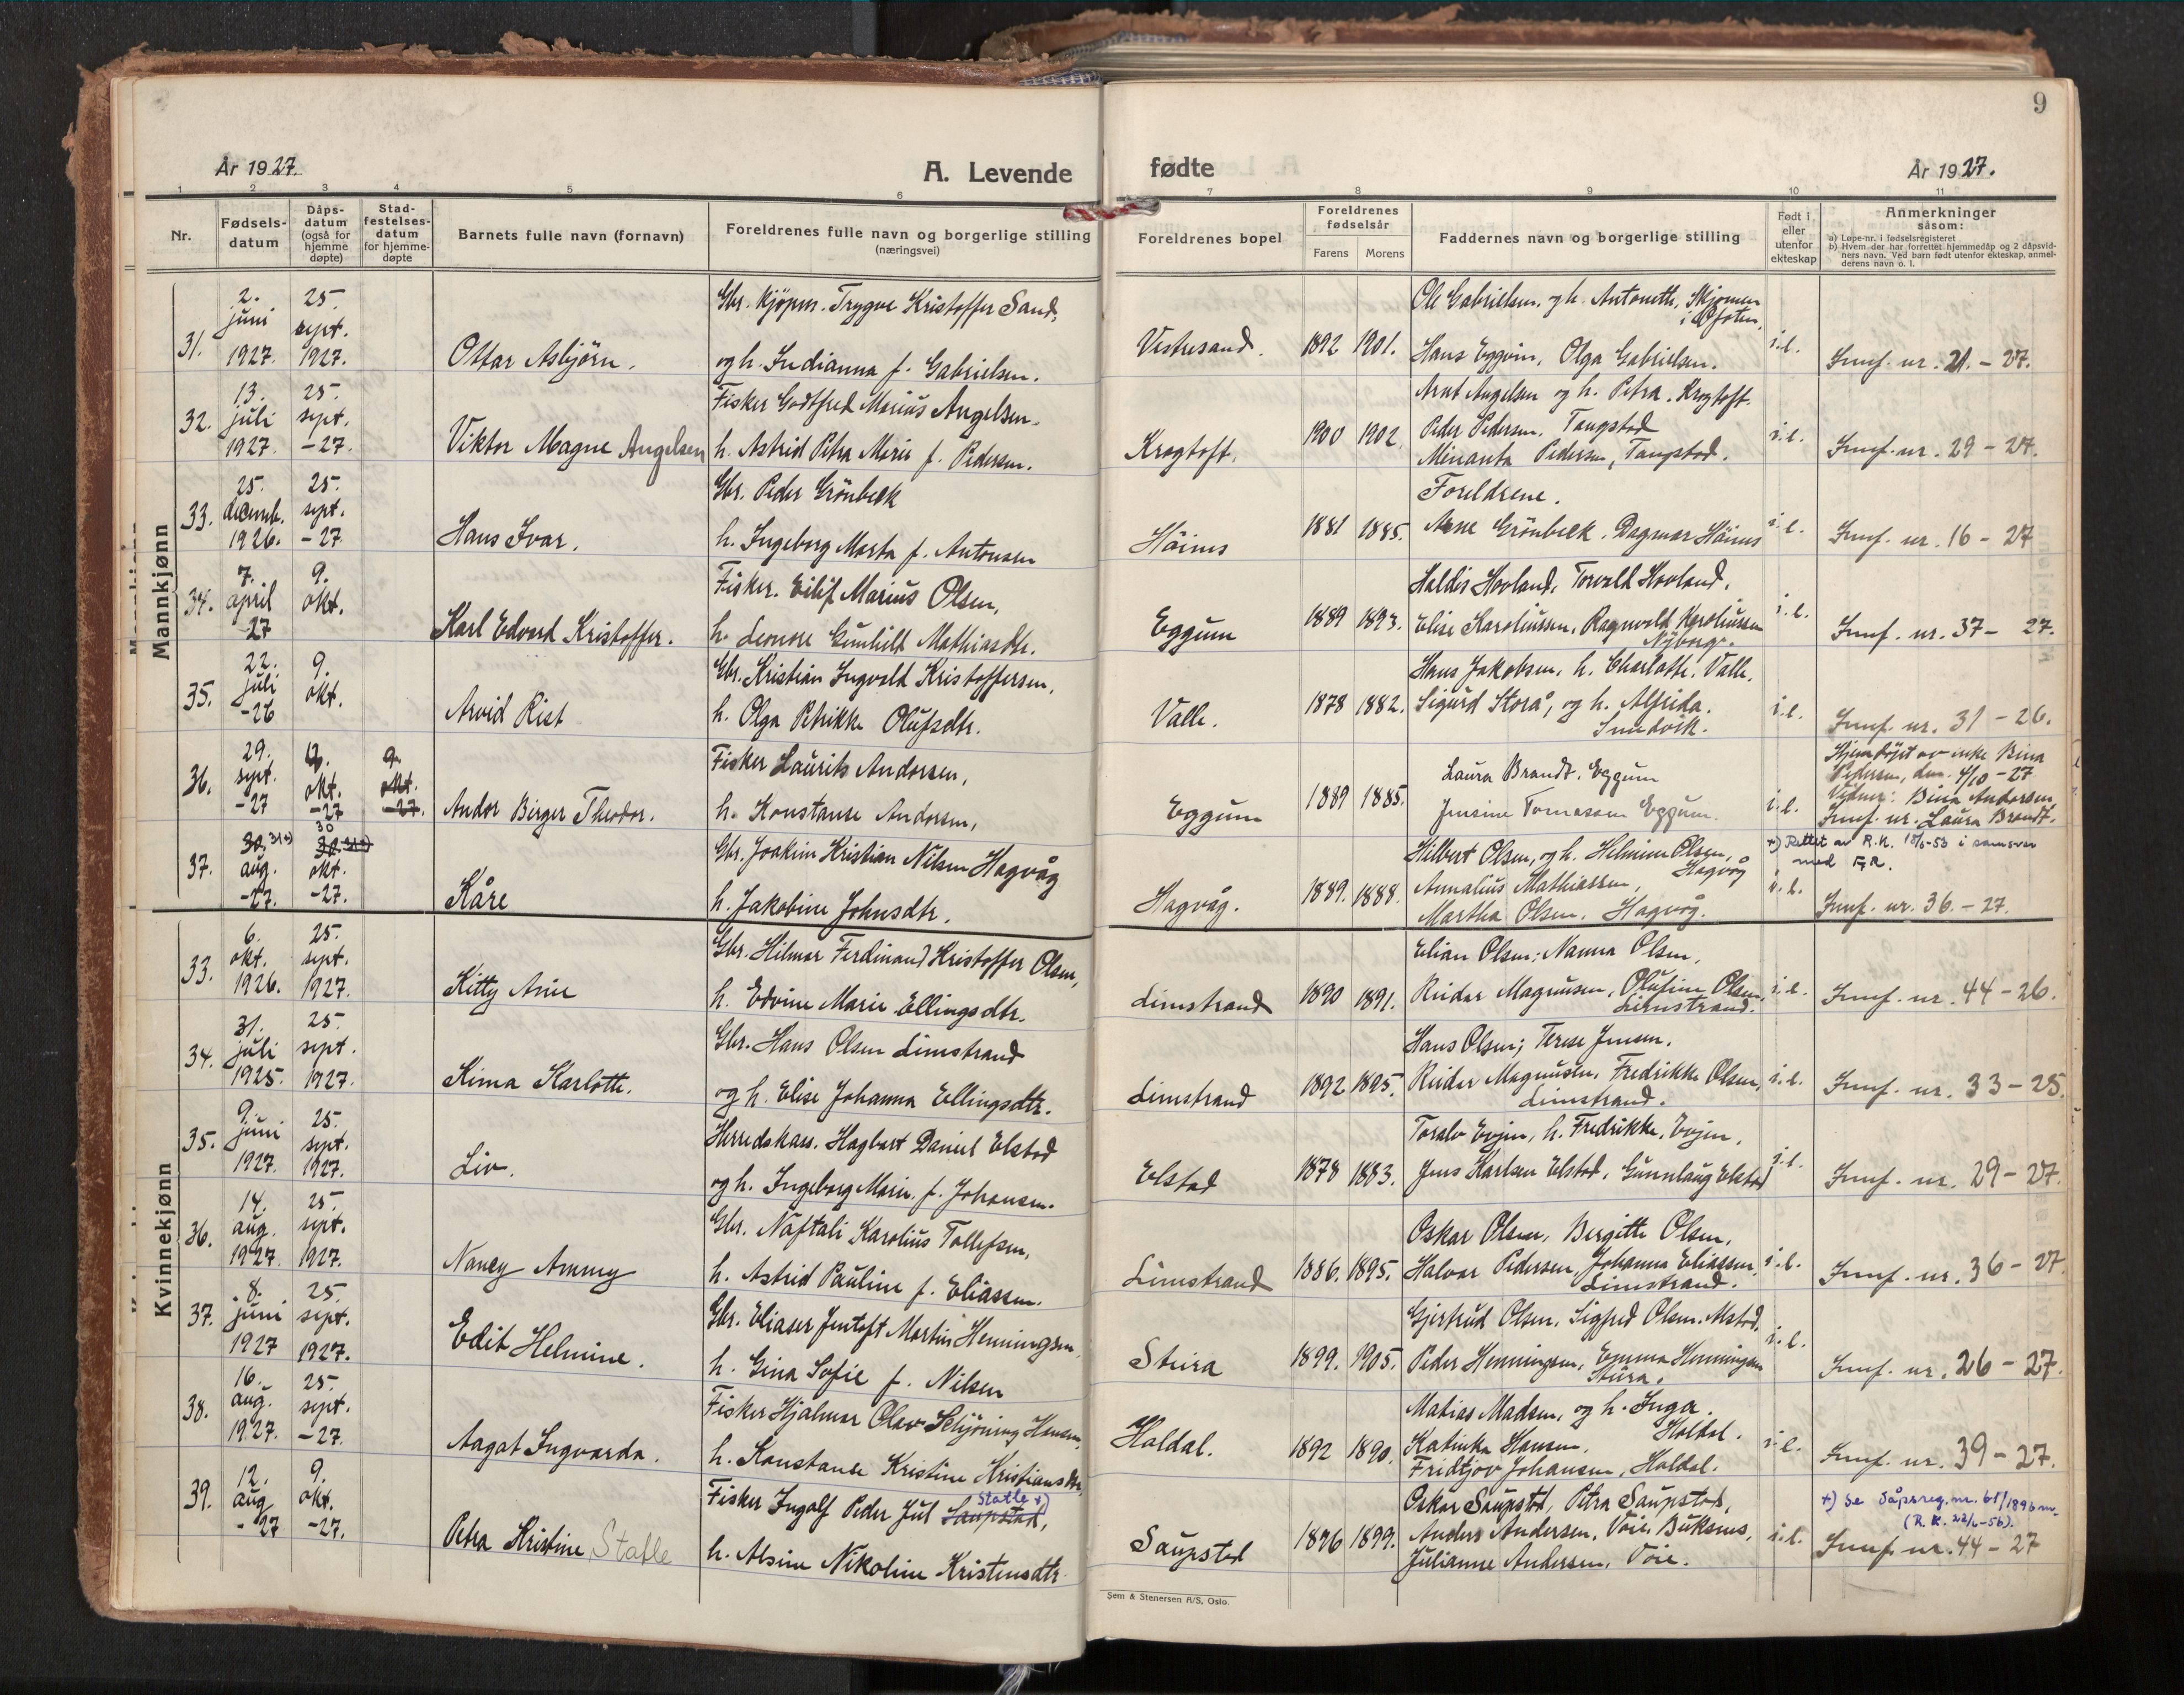 9
År 1927.
A. Levende
fødte
År 1927.
1 2 3 4 5 6 7 8 9 10 11
Nr.
Fødsels-
datum
Dåps-
datum
(også for
hjemme
døpte)
Stad-
festelses-
datum
for hjemme-
døpte
Barnets fulle navn (fornavn)
Foreldrenes fulle navn og borgerlige stilling
(næringsvei)
Foreldrenes bopel
Foreldrenes
fødselsår
Farens Morens
Faddernes navn og borgerlige stilling
Født i
eller
utenfor
ekteskap
Anmerkninger
såsom:
a) Løpe-nr. i fødselsregisteret
b) Hvem der har forrettet hjemmedåp og 2 dåpsvid-
ners navn. Ved barn født utenfor ekteskap, anmel-
derens navn o. l.
Mannkjønn
31.
2.
juni
1927.
25.
sept.
1927.
Ottar Asbjörn.
Gbr. kjöpm. Trygve Kristoffer Sand,
og h. Indianna f. Gabrielsen.
Vestresand.
1892 1901.
Ole Gabrielsen, og h. Antonette, Skjomen
i Ofoten,
Hans Eggum, Olga Gabrielsen.
i.e.
Jmf. nr. 21. - 27.
32.
13.
juli
1927.
25.
sept.
-27.
Viktor Magne Angelsen
Fisker Godtfred Marius Angelsen.
h. Astrid Petra Marie f. Pedersen.
Krogtoft.
1900 1902.
Arnt Angelsen og h. Petra. Krogtoft.
Peder Pedersen, Tangstad
Minanta Pedersen, Tangstad.
i.e.
Jmf. nr. 29 - 27.
33.
25.
decemb.
1926.
25.
sept.
-27.
Hans Ivar.
Gbr. Peder Grönbeck
h. Ingeborg Marta f. Antonsen
Höines
1881 1885.
Foreldrene.
Arne Grönbeck. Dagmar Höines
i.e.
Jmf. nr. 16 - 27
34.
7.
april
27
9.
okt.
Karl Edvard Kristoffer.
Fisker. Eilif Marius Olsen,
h. Leonore Gunhild Mathiasdtr.
Eggum
1889 1893.
Haldis Hovland, Torvald Hovland,
Elise Karoliussen, Ragnvald Karoliussen
Nyborg.
i.e.
Jmf. nr. 37 - 27.
35.
22.
juli
-26
9.
okt.
Arvid Rist
Gbr. Kristian Ingvald Kristoffersen,
h. Olga Petrikke Olufsdtr.
Valle.
1878 1882.
Hans Jakobsen, h. Charlotte. Valle.
Sigurd Storå, og h. Alfrida.
Sundvik.
i.e.
Jmf. nr. 31 - 26.
36.
29.
sept.
-27
okt.
-27
9.
okt.
-27.
Andor Birger Theodor.
Fisker Laurits Andorsen,
h. Konstanse Andorsen,
Eggum
1889 1885.
Laura Brandt, Eggum
Jensine Tomassen Eggum.
i.e.
Hjemdöpt av enke Bina
Pedersen, den 4/10 - 27
Vidner: Bina Andorsen,
Jmf. nr. Laura Brandt.
37.
30. 31 +)
aug.
-27.
30
30. 31 +)
okt.
-27.
Kåre
Gbr. Joakim Kristian Nilsen Hagvåg
h. Jakobine Johnsdtr.
Hagvåg.
1889. 1888.
Hilbert Olsen, og h. Helmine Olsen,
Hagvåg
Annalius Mathiassen,
Martha Olsen. Hagvåg.
i.e.
+) Rettet av R.K. 18/6-53 i samsvar
med F.R.
Jmf. nr. 36. - 27.
Kvinnekjønn
33.
6.
okt.
1926.
25.
sept.
1927.
Kitty Arie
Gbr. Hilmar Ferdinand Kristoffer Olsen,
h. Edvine Marie Ellingsdtr.
Limstrand
1890 1891.
Elian Olsen; Nanna Olsen,
Reidar Magnussen, Olufine Olsen,
Limstrand.
i.e.
Jmf. nr. 44 - 26.
34.
31.
juli
1925.
25.
sept.
1927.
Kima Karlotte.
Gbr. Hans Olsen Limstrand
og h. Elise Johanna Ellingsdtr.
Limstrand
1892 1895.
Hans Olsen; Terese Jensen.
Reidar Magnussen, Fredrikke Olsen,
Limstrand.
i.e.
Jmf. nr. 33 - 25.
35.
9.
juni
1927.
25.
sept.
1927.
Liv.
Herredskass. Hagbart Daniel Elstad
og h. Ingeborg Marie f. Johansen.
Elstad
1878 1883.
Toralv Evjen, h. Fredrikke, Evjen,
Jens Karlsen Elstad, Gunnlaug Elstad
i.e.
Jmf. nr. 29 - 27.
36.
14.
aug.
1927.
25.
sept.
1927.
Nancy Ammy
Gbr. Naftali Karolius Tollefsen,
h. Astrid Pauline f. Eliassen.
Limstrand
1886. 1895.
Oskar Olsen, Bergitte Olsen,
Halvar Pedersen, Johanna Eliassen,
Limstrand.
i.e.
Jmf. nr. 36 - 27.
37.
8.
juni
1927
25.
sept.
1927.
Edit Helmine.
Gbr. Eliaser Jentoft Martin Henningsen,
h. Gina Sofie f. Nilsen
Stüra
1899. 1905.
Gjertrud Olsen, Sigfred Olsen. Mstad.
Peder Henningsen, Emma Henningsen
Stüra.
i.e.
Jmf. nr. 26 - 27.
38.
16.
aug.
1927.
25.
sept.
-27.
Aagat Ingvarda.
Fisker Hjalmar Olav Schjöning Hansen,
h. Konstanse Kristine Kristiansdtr.
Haldal.
1892 1890.
Matias Madsen, og h. Inga.
Haldal.
Katinka Hansen.
Fridtjov Johansen, Haldal.
i.e.
Jmf. nr. 39 - 27.
39.
12.
aug
-27
9.
okt.
-27.
Petra Kristine Statle
Fisker Ingolf Peder Jul Saupstad,
Statle +)
h. Alsine Nikoline Kristensdtr.
Saupstad
1896 1899.
Oskar Saupstad, Petra Saupstad,
Anders Andersen, Voie, Buksnes,
Julianne Andersen, Voie.
i.e.
+) Se Dåpsreg. nr. 61/1896 m.
(R.K. 22/6-56).
Jmf. nr. 44 - 27
Sem & Stenersen A/S, Oslo.